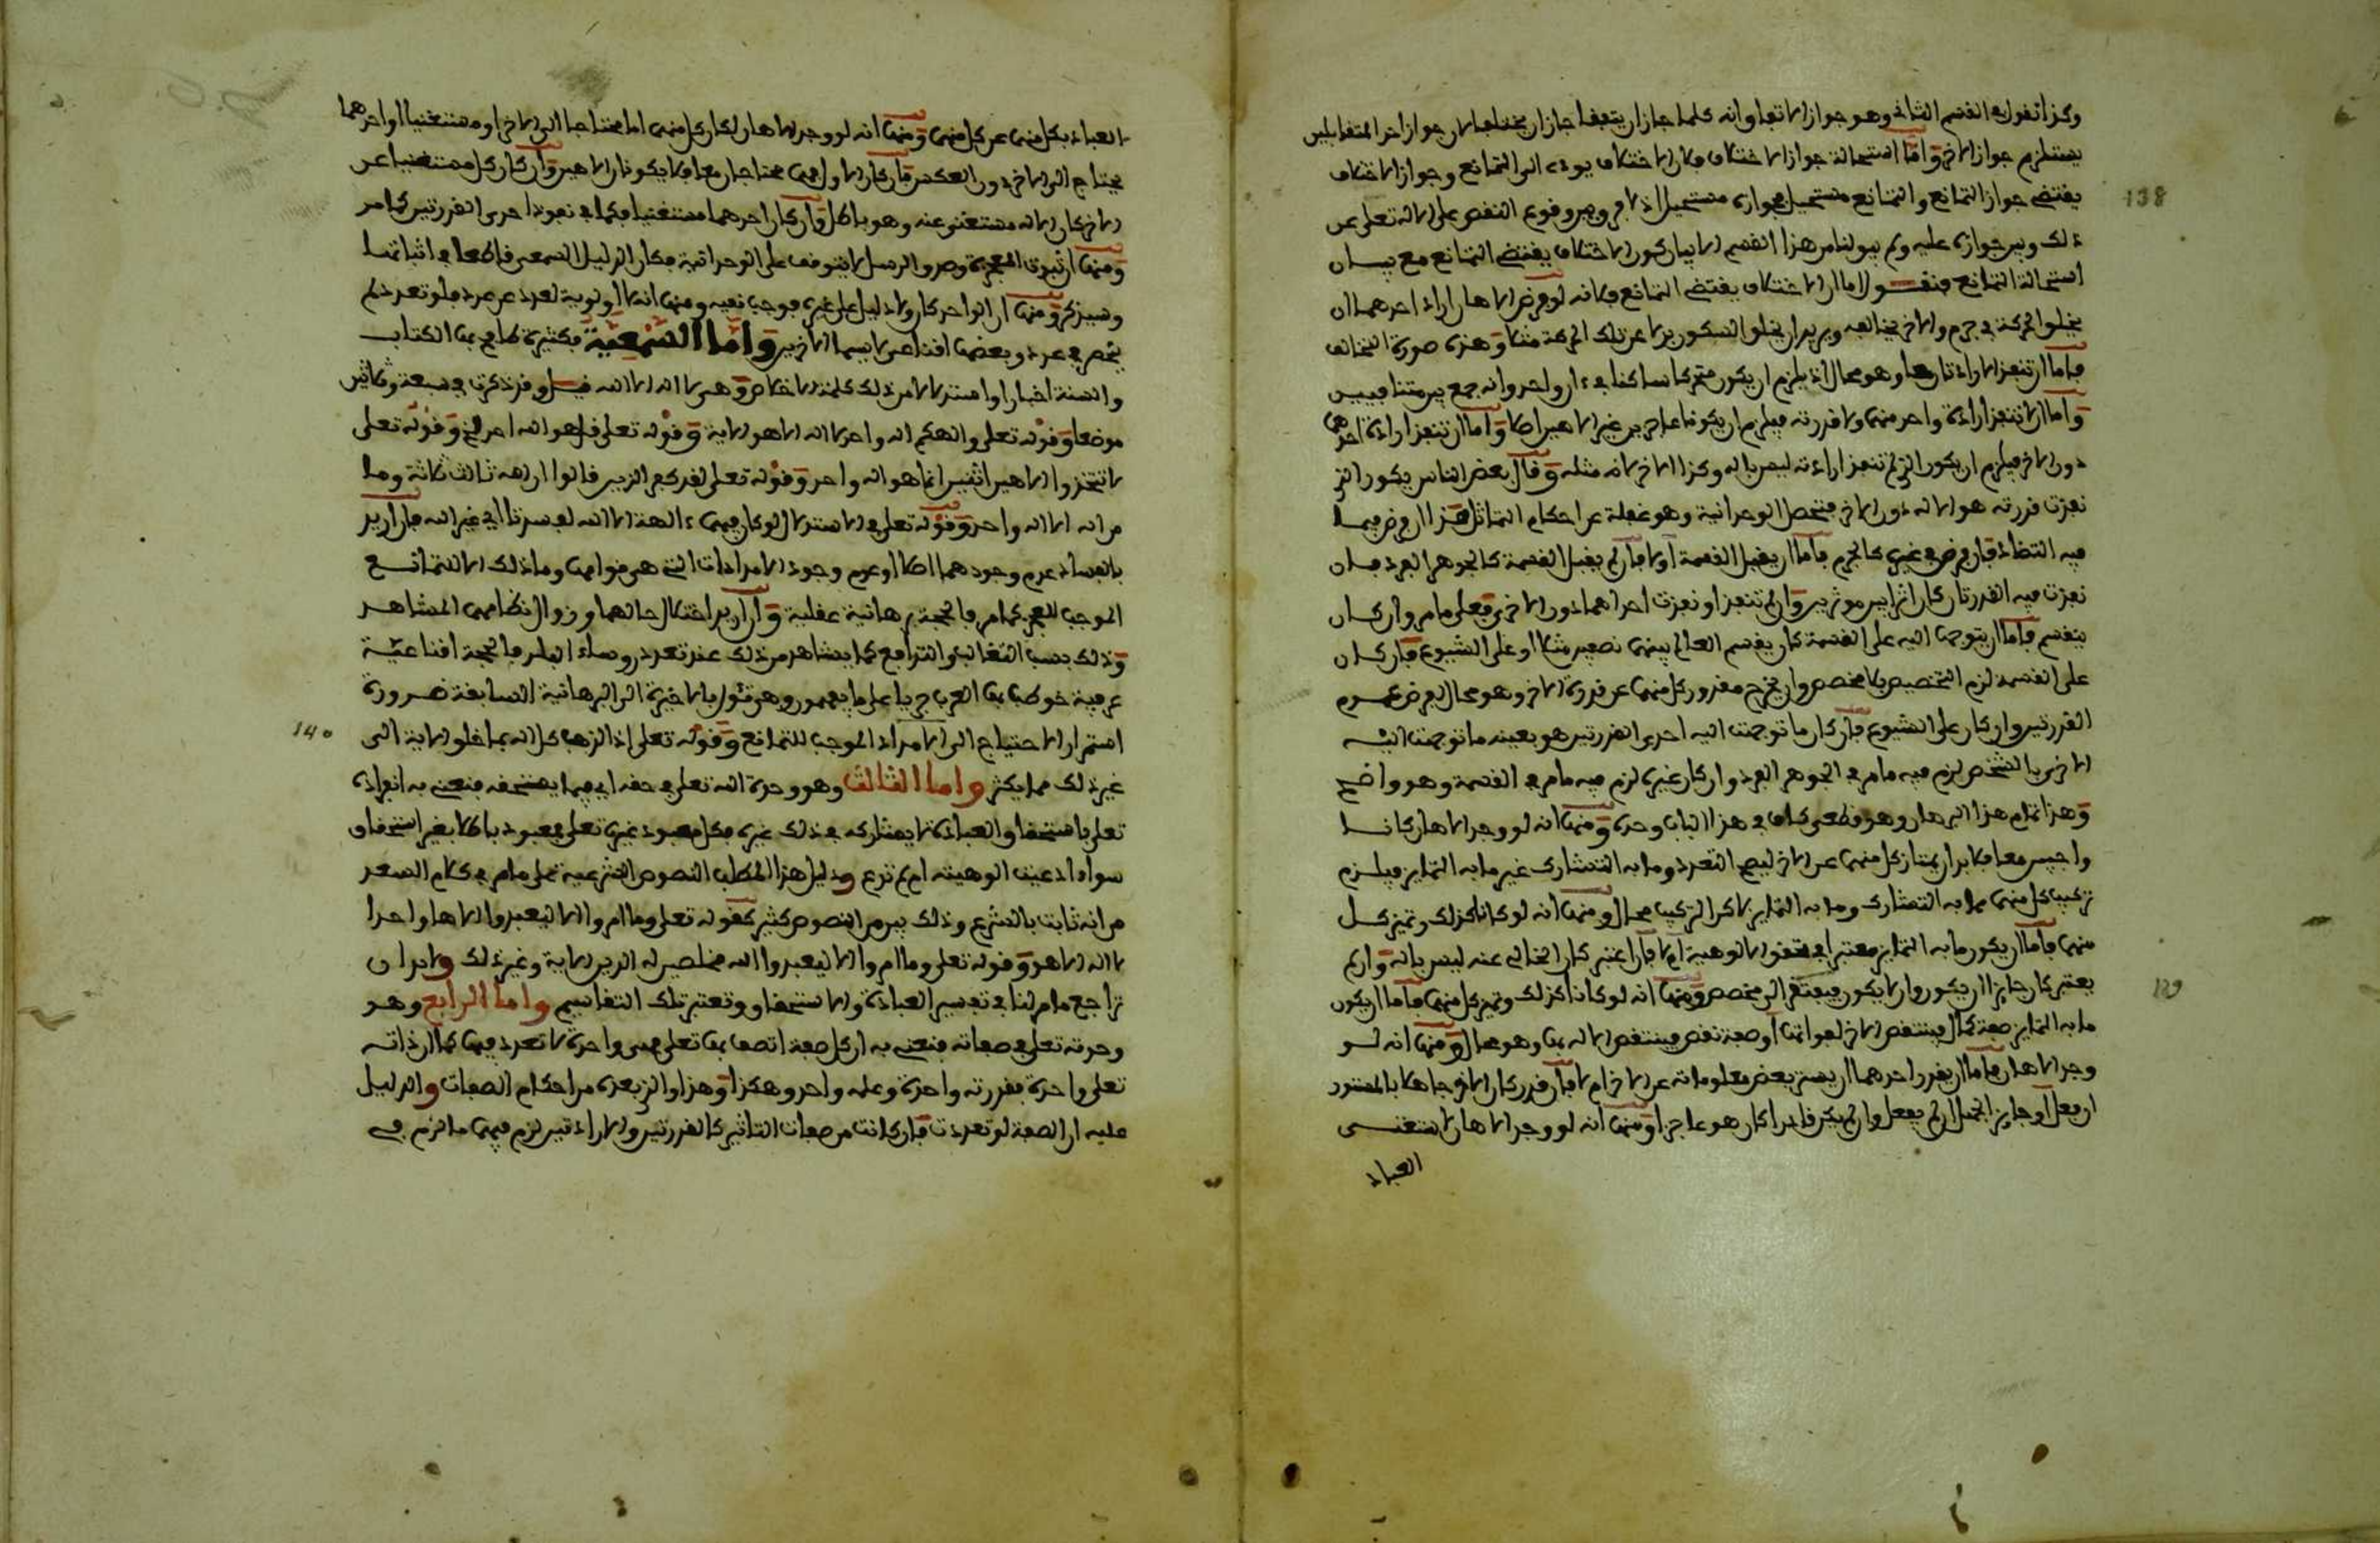 وكذا نقول في القسم الثاني وهو جواز الاتفاق وانه كلما جاز ان يتفقا جاز ان يختلفا لان جواز احد المتقابلين
يستلزم جواز الاخر واما استحالة جواز الاختلاف فلان الاختلاف يودي الى التمانع وجواز الاختلاف
يقتضي جواز التمانع والتمانع مستحيل فجوازه مستحيل اذ لا فرق بين وقوع النقص على الاله تعلى عن
ذلك وبين جوازه عليه ولم يبق لنا من هذا القسم الا بيان كون الاختلاف يقتضي التمانع مع بيان
استحالة التمانع فنقول اما ان الاختلاف يقتضي التمانع فلانه لو فرض الاهان اراد احدهما ان
يخلق الحركة في جرم والاخر يخالفه ويريد ان يخلق السكون بدلا عن تلك الحركة مثلا وهذه صورة التخالف
فاما ان تنفذ الارادتان معا وهو محال اذ يلزم ان يكون متحركا ساكنا في ءان واحد وانه جمع بين متنافيين
واما ان لا تنفذ ارادة واحد منهما ولا قدرته فيلزم ان يكونا عاجزين غير الاهين اصلا واما ان تنفذ ارادة احدهما
دون الاخر فيلزم ان يكون الذي لم تنفذ ارادته ليس باله وكذا الاخر لانه مثله وقال بعض الناس يكون الذي
نفذت قدرته هو الاله دون الاخر فتحصل الوحدانية وهو غفلة عن احكام التماثل هذا ان فرض فيما
فيه التضاد فان فرض في غيره كالجرم فاما ان يقبل القسمة او لا فان لم يقبل القسمة كالجوهر الفرد فان
نفذت فيه القدرتان كان اثرا بين موثرين وان لم تنفذ او نفذت احداهما دون الاخرى فعلى ما مر وان كان
ينقسم فاما ان يتوجها اليه على القسمة كان يقسم العالم بينهما نصفين مثلا او على الشيوع فان كان
على القسمة لزم التخصيص بلا مخصص وان يخرج مقدور كل منهما عن قدرة الاخر وهو محال لفرض عموم
القدرتين وان كان على الشيوع فان كان ما توجهت اليه احدى القدرتين هو بعينه ما توجهت اليه
الاخرى بالشخص لزم فيه ما مر في الجوهر الفرد وان كان غيره لزم فيه ما مر في القسمة وهو واضح
وهذا تمام هذا البرهان وهو قطعي كاف في هذا الباب وحده ومنها انه لو وجد الاهان كانا
واجبين معا فلا بد ان يمتاز كل منهما عن الاخر ليصح التعدد وما به التشارك غير ما به التمايز فيلزم
تركيب كل منهما مما به التشارك وما به التمايز لاكن التركيب محال ومنها انه لو كانا كذلك وتميز كل
منهما فاما ان يكون ما به التمايز معتبرا في تحقق الالوهية ام لا فان اعتبر كان الخالي عنه ليس باله وان لم
يعتبر كان جايزا ان يكون وان لا يكون فيفتقر الى مخصص ومنها انه لو كانا كذلك وتميز كل منهما فاما ان يكون
ما به التمايز صفة كمال فينتقص الاخر لفواتها او صفة نقص فينتقص الاله بها وهو محال ومنها انه لو
وجد الاهان فاما ان يقدر احدهما ان يستر بعض معلوماته عن الاخر ام لا فان قدر كان الاخر جاهلا بالمستور
ان فعل او جايز الجهل ان لم يفعل وان لم يكن قادرا كان هو عاجزا ومنها انه لو وجد الاهان لاستغنى
العباد
العباد بكل منهما عن كل منهما ومنها انه لو وجد الاهان لكان كل منهما اما محتاجا الى الاخر او مستغنيا او احدهما
يحتاج الى الاخر دون العكس فان كان الاول فهما محتاجان معا فلا يكونان الاهين وان كان كل مستغنيا عن
الاخر كان الاله مستغنى عنه وهو باطل وان كان احدهما مستغنيا فكما في نفوذ احدى القدرتين كما مر
ومنها ان ثبوت المعجزة وصدق الرسل لا يتوقف على الوحدانية فكان الدليل السمعي قاطعا في اثباتها
وسيذكر ومنها ان الواحد كاف ولا دليل على غيره فوجب نفيه ومنها انه لا اولوية لعدد عن عدد فلو تعدد لم
ينحصر في عدد وبعضها اقناعي لا سيما الاخير واما السمعية فكثيرة طافح بها الكتاب
والسنة اخبارا واستدلالا من ذلك كلمة الاخلاص وهي لا اله الا الله قيل وقد ذكرت في سبعة وثلاثين
موضعا وقوله تعلى والهكم اله واحد لا اله الا هو الاية وقوله تعلى قل هو الله احد الخ وقوله تعلى
لا تتخذوا الاهين اثنين انما هو اله واحد وقوله تعلى لقد كفر الذين قالوا ان الله ثالث ثلاثة وما
من اله الا اله واحد وقوله تعلى في الاستدلال لو كان فيهما ءالهة الا الله لفسدتا اي غير الله فان اريد
بالفساد عدم وجودهما اصلا او عدم وجود الامدادات التي هي قوامها وما ذلك الا للتمانع
الموجب للعجز كما مر فالحجة برهانية عقلية وان اريد اختلال حالهما وزوال نظامهما المشاهد
وذلك بسبب التغالب والتدافع كما يشاهد من ذلك عند تعدد روساء البلد فالحجة اقناعية
عرفية خوطب بها العرب جريا على ما يعهدون وهي تئول بالاخرة الى البرهانية السابقة ضرورة
استمرار الاحتياج الى الامداد الموجب للتمانع وقوله تعلى اذا لذهب كل اله بما خلق الاية الى
غير ذلك مما يكثر واما الثالث وهو وحدة الله تعلى في حقه اي فيما يستحقه فنعني به انفراده
تعلى باستحقاق العبادة لا يشاركه في ذلك غيره فكل معبود غيره تعلى فمعبود باطلا بغير استحقاق
سواء ادعيت الوهيته ام لم تدع ودليل هذا المطلب النصوص الشرعية على ما مر في كلام السعد
من انه ثابت بالشرع وذلك بين من النصوص كثير كقوله تعلى وما امروا الا ليعبدوا الاها واحدا
لا اله الا هو وقوله تعلى وما امروا الا ليعبدوا الله مخلصين له الدين الاية وغير ذلك ولا بد ان
تراجع ما مر لنا في تفسير العبادة والاستحقاق وتعتبر تلك التقاسيم واما الرابع وهو
وحدته تعلى في صفاته فنعني به ان كل صفة اتصف بها تعلى فهي واحدة لا تعدد فيها كما ان ذاته
تعلى واحدة فقدرته واحدة وعلمه واحد وهكذا وهذا والذي بعده من احكام الصفات والدليل
عليه ان الصفة لو تعددت فان كانت من صفات التاثير كالقدرتين والارادتين لزم فيهما ما لزم في
138
139
140